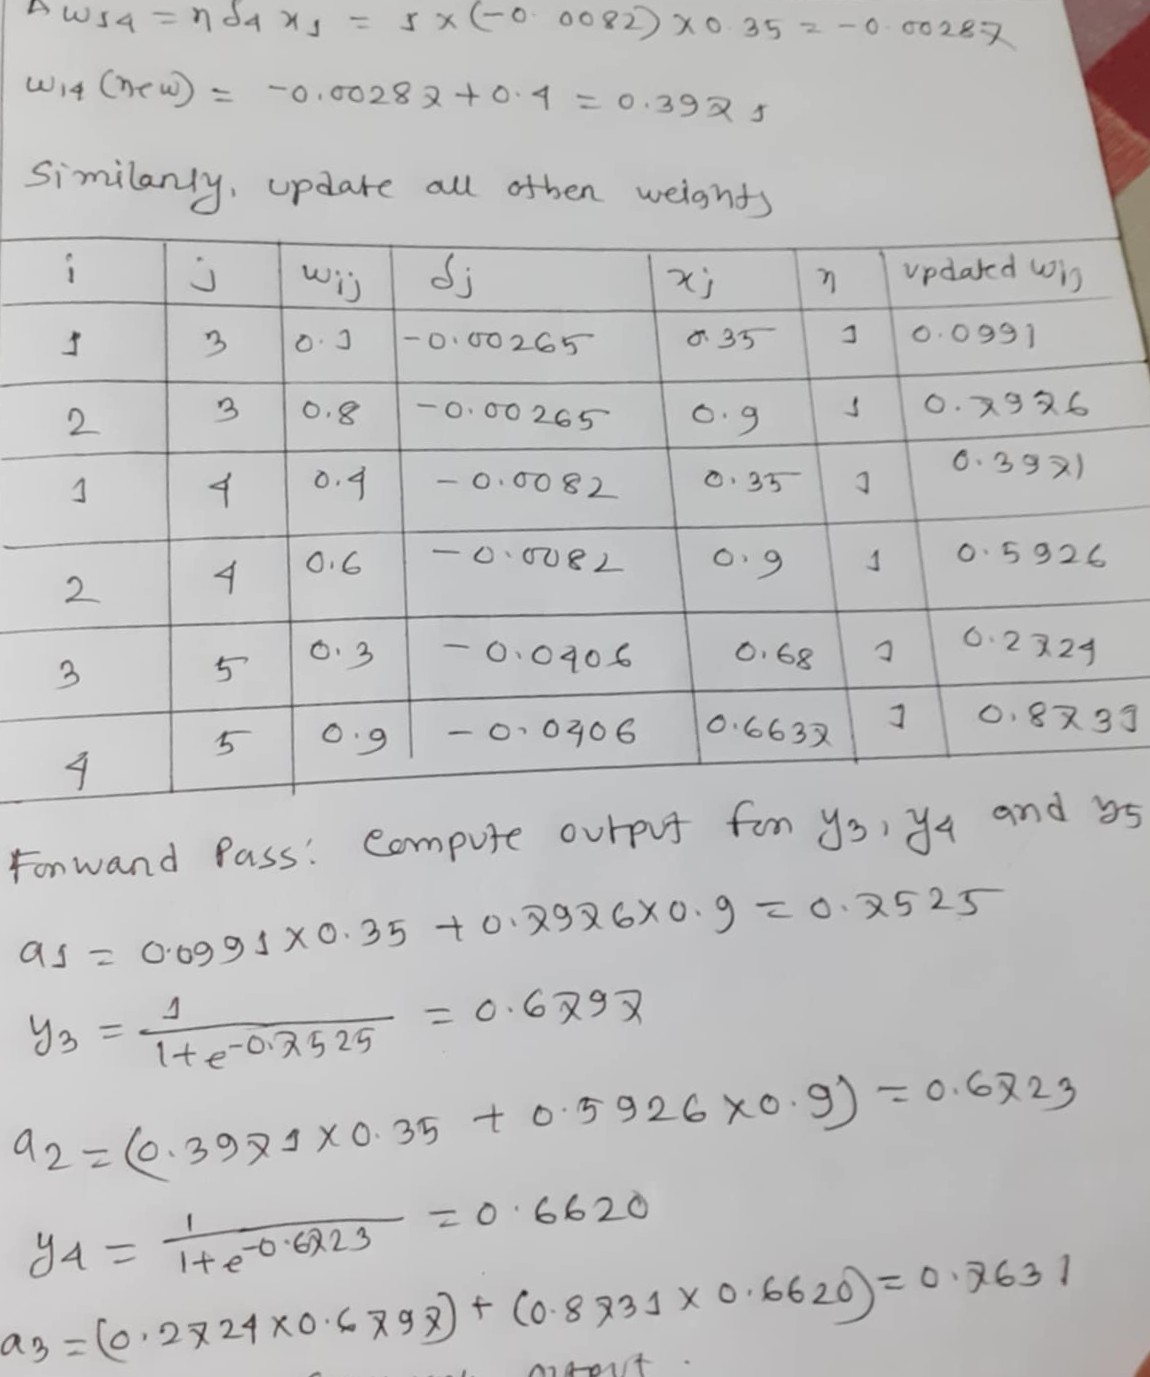 Δw14 = ηδ4 x1 = 1 × (-0.0082) × 0.35 = -0.00287
w14 (new) = -0.00287 + 0.4 = 0.3971
Similarly, update all other weights
i j wij δj xj η updated wij
1 3 0.1 -0.00265 0.35 1 0.0991
2 3 0.8 -0.00265 0.9 1 0.7976
1 4 0.4 -0.0082 0.35 1 0.3971
2 4 0.6 -0.0082 0.9 1 0.5926
3 5 0.3 -0.0406 0.68 1 0.2724
4 5 0.9 -0.0406 0.6637 1 0.8731
Forward Pass: Compute output for y3, y4 and y5
a1 = 0.0991 × 0.35 + 0.7976 × 0.9 = 0.7525
y3 = 1 / 1+e^-0.7525 = 0.6797
a2 = (0.3971 × 0.35 + 0.5926 × 0.9) = 0.6723
y4 = 1 / 1+e^-0.6723 = 0.6620
a3 = (0.2724 × 0.6797) + (0.8731 × 0.6620) = 0.7631
output.